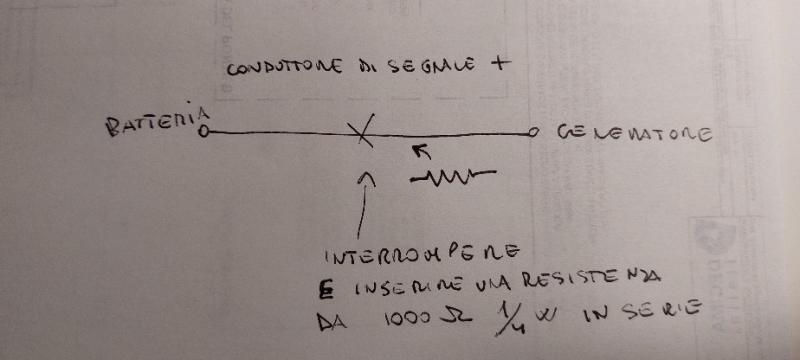 CONDUTTORE DI SEGNALE +
BATTERIA
GENERATORE
INTERROMPERE
E INSERIRE UNA RESISTENZA
DA 1000 Ω 1/4 W IN SERIE